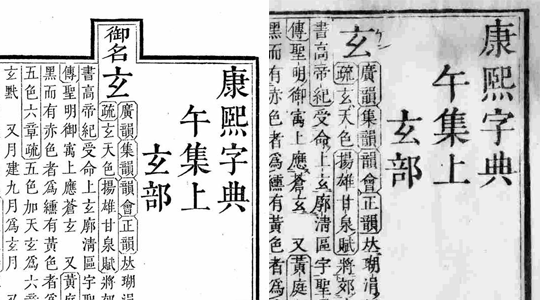 康熙字典
午集上
玄部
御名
玄
廣韻集韻韻會正韻𠀤瑚涓
疏玄天色揚雄甘泉賦將郊
書高帝紀受命上玄廓清區宇聖
傳聖明御寓上應蒼玄 又黃庭
黑而有赤色者爲纁有黃色者爲
五色六章疏五色加天玄爲六
玄黓 又月建九月爲玄月
康熙字典
午集上
玄部
玄
廣韻集韻韻會正韻𠀤瑚涓
疏玄天色揚雄甘泉賦將郊
書高帝紀受命上玄廓清區宇聖
傳聖明御寓上應蒼玄 又黃庭
黑而有赤色者爲纁有黃色者爲